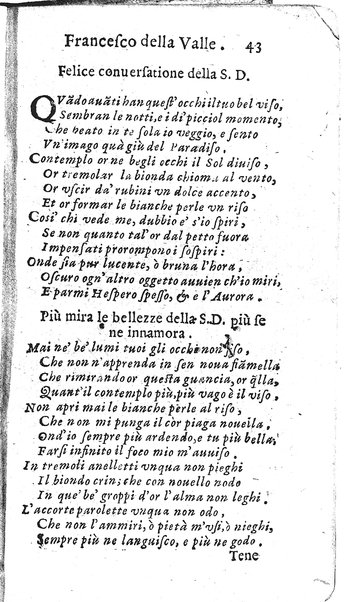 Francesco della Valle. 43
Felice conuersatione della S. D.
QVãdo auãti han quest' occhi il tuo bel viso,
Sembran le notti, e i dì picciol momento,
Che beato in te sola io veggio, e sento
Vn'imago quà giù del Paradiso.
Contemplo or ne begli occhi il Sol diuiso,
Or tremolar la bionda chioma al vento,
Or vscir da' rubini vn dolce accento,
Et or formar le bianche perle vn riso
Così chi vede me, dubbio è s'io spiri,
Se non quanto tal'or dal petto fuora
Impensati prorompono i sospiri:
Onde sia pur lucente, ò bruna l'hora,
Oscuro ogn'altro oggetto auuien ch'io miri,
E parmi Hespero spesso, & e l'Aurora.
Più mira le bellezze della S.D. più se
ne innamora.
Mai ne' be' lumi tuoi gli occhi non
Che non n'apprenda in sen noua fiãmella
Che rimirando or questa guancia, or q̃lla,
Quant'il contemplo più, più vago è il viso.
Non apri mai le bianche perle al riso,
Che non mi punga il còr piaga nouella.
Ond'io sempre più ardendo, e tu più bella,
Farsi infinito il foco mio m'auuiso.
In tremoli anelletti vnqua non pieghi
Il biondo crin; che con nouello nodo
In que' be' groppi d'or l'alma non leghi.
L'accorte parolette vnqua non odo,
Che non l'ammiri, ò pietà m'vsi, ò nieghi,
Sempre più ne languisco, e più ne godo.
Tene